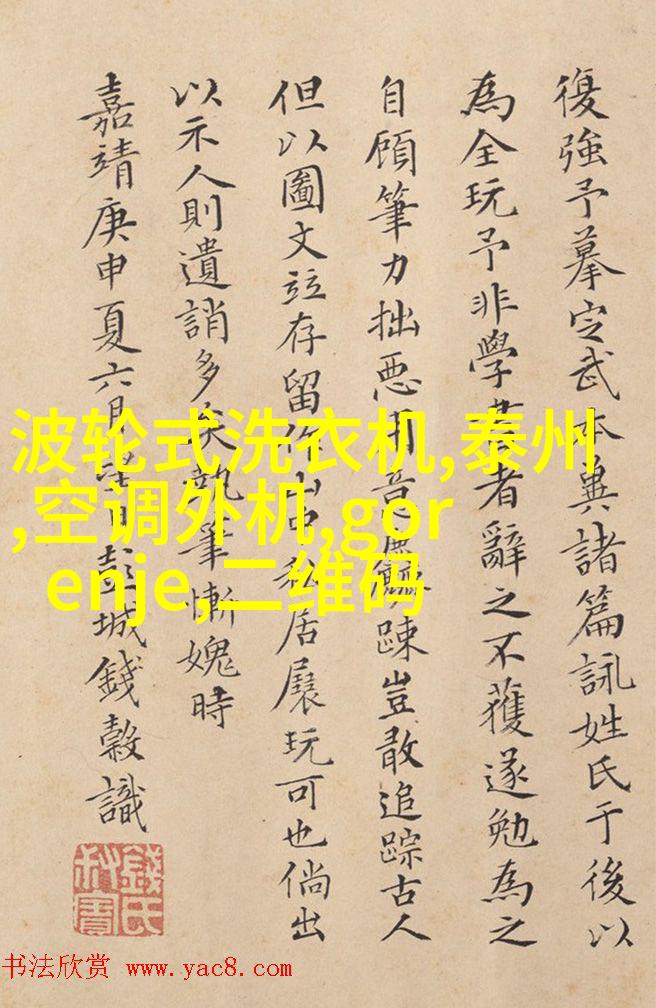 復強予摹定武本與諸篇詠姓氏于後以
為全玩予非學書者辭之不獲遂勉為之
自顧筆力拙惡用意踈豈敢追踪古人
但以圖文竝存留作山中私居展玩可也倘出
以示人則遺誚多矣執筆慚媿時
嘉靖庚申夏六月望日彭城錢榖識
錢氏叔寶
波轮式洗衣机,泰州
,空调外机,gor
enje,二维码
书法欣赏 www.yac8.com